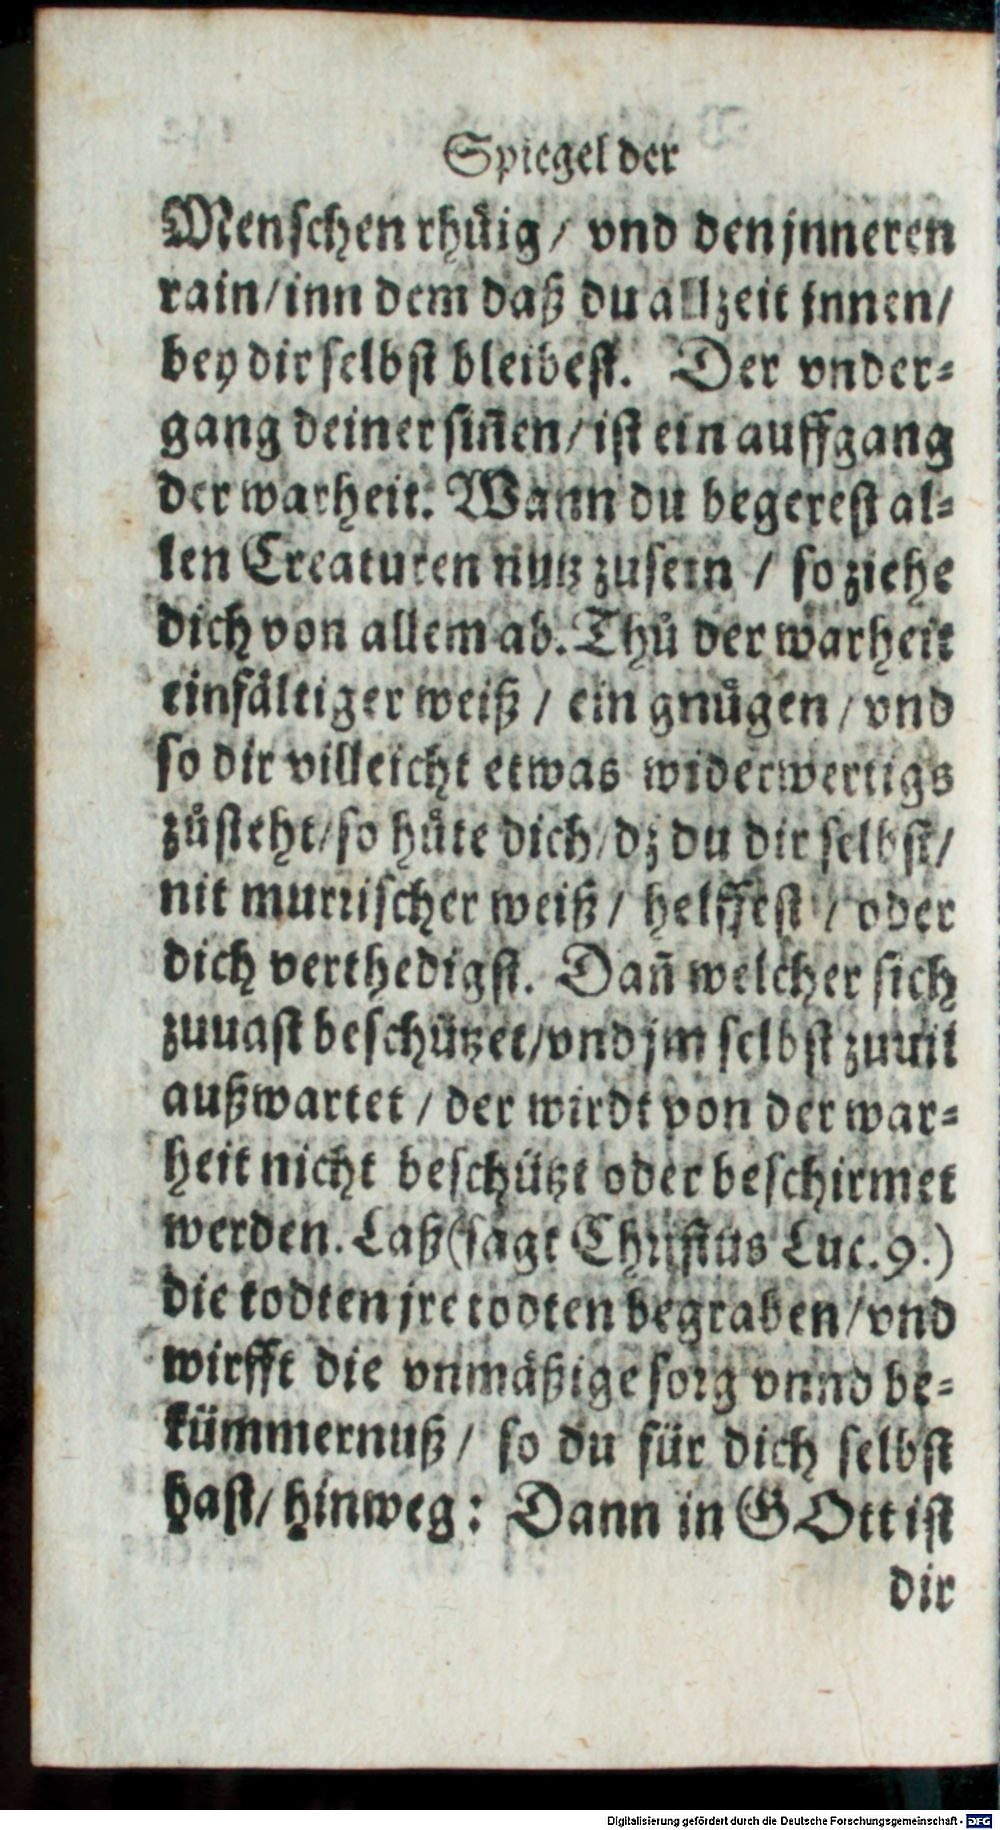 Spiegel der
Menschen rhüig / vnd den jnneren
rain / inn dem daß du allzeit jnnen /
bey dir selbst bleibest. Der vnder-
gang deiner siñen / ist ein auffgang
der warheit. Wann du begerest al-
len Creaturen nutz zusein / so ziehe
dich von allem ab. Thů der warheit
einfältiger weiß / ein gnůgen / vnd
so dir villeicht etwas widerwertigs
zůsteht / so hůte dich / dz du dir selbst /
nit murrischer weiß / helffest / oder
dich verthedigst. Dañ welcher sich
zuuast beschützet / vnd jm selbst zuuil
außwartet / der wirdt von der war-
heit nicht beschützt oder beschirmet
werden. Laß (sagt Christus Luc. 9.)
die todten jre todten begraben / vnd
wirfft die vnmäßige sorg vnnd be-
kümmernuß / so du für dich selbst
hast / hinweg: Dann in GOtt ist
dir
Digitalisierung gefördert durch die Deutsche Forschungsgemeinschaft - DFG